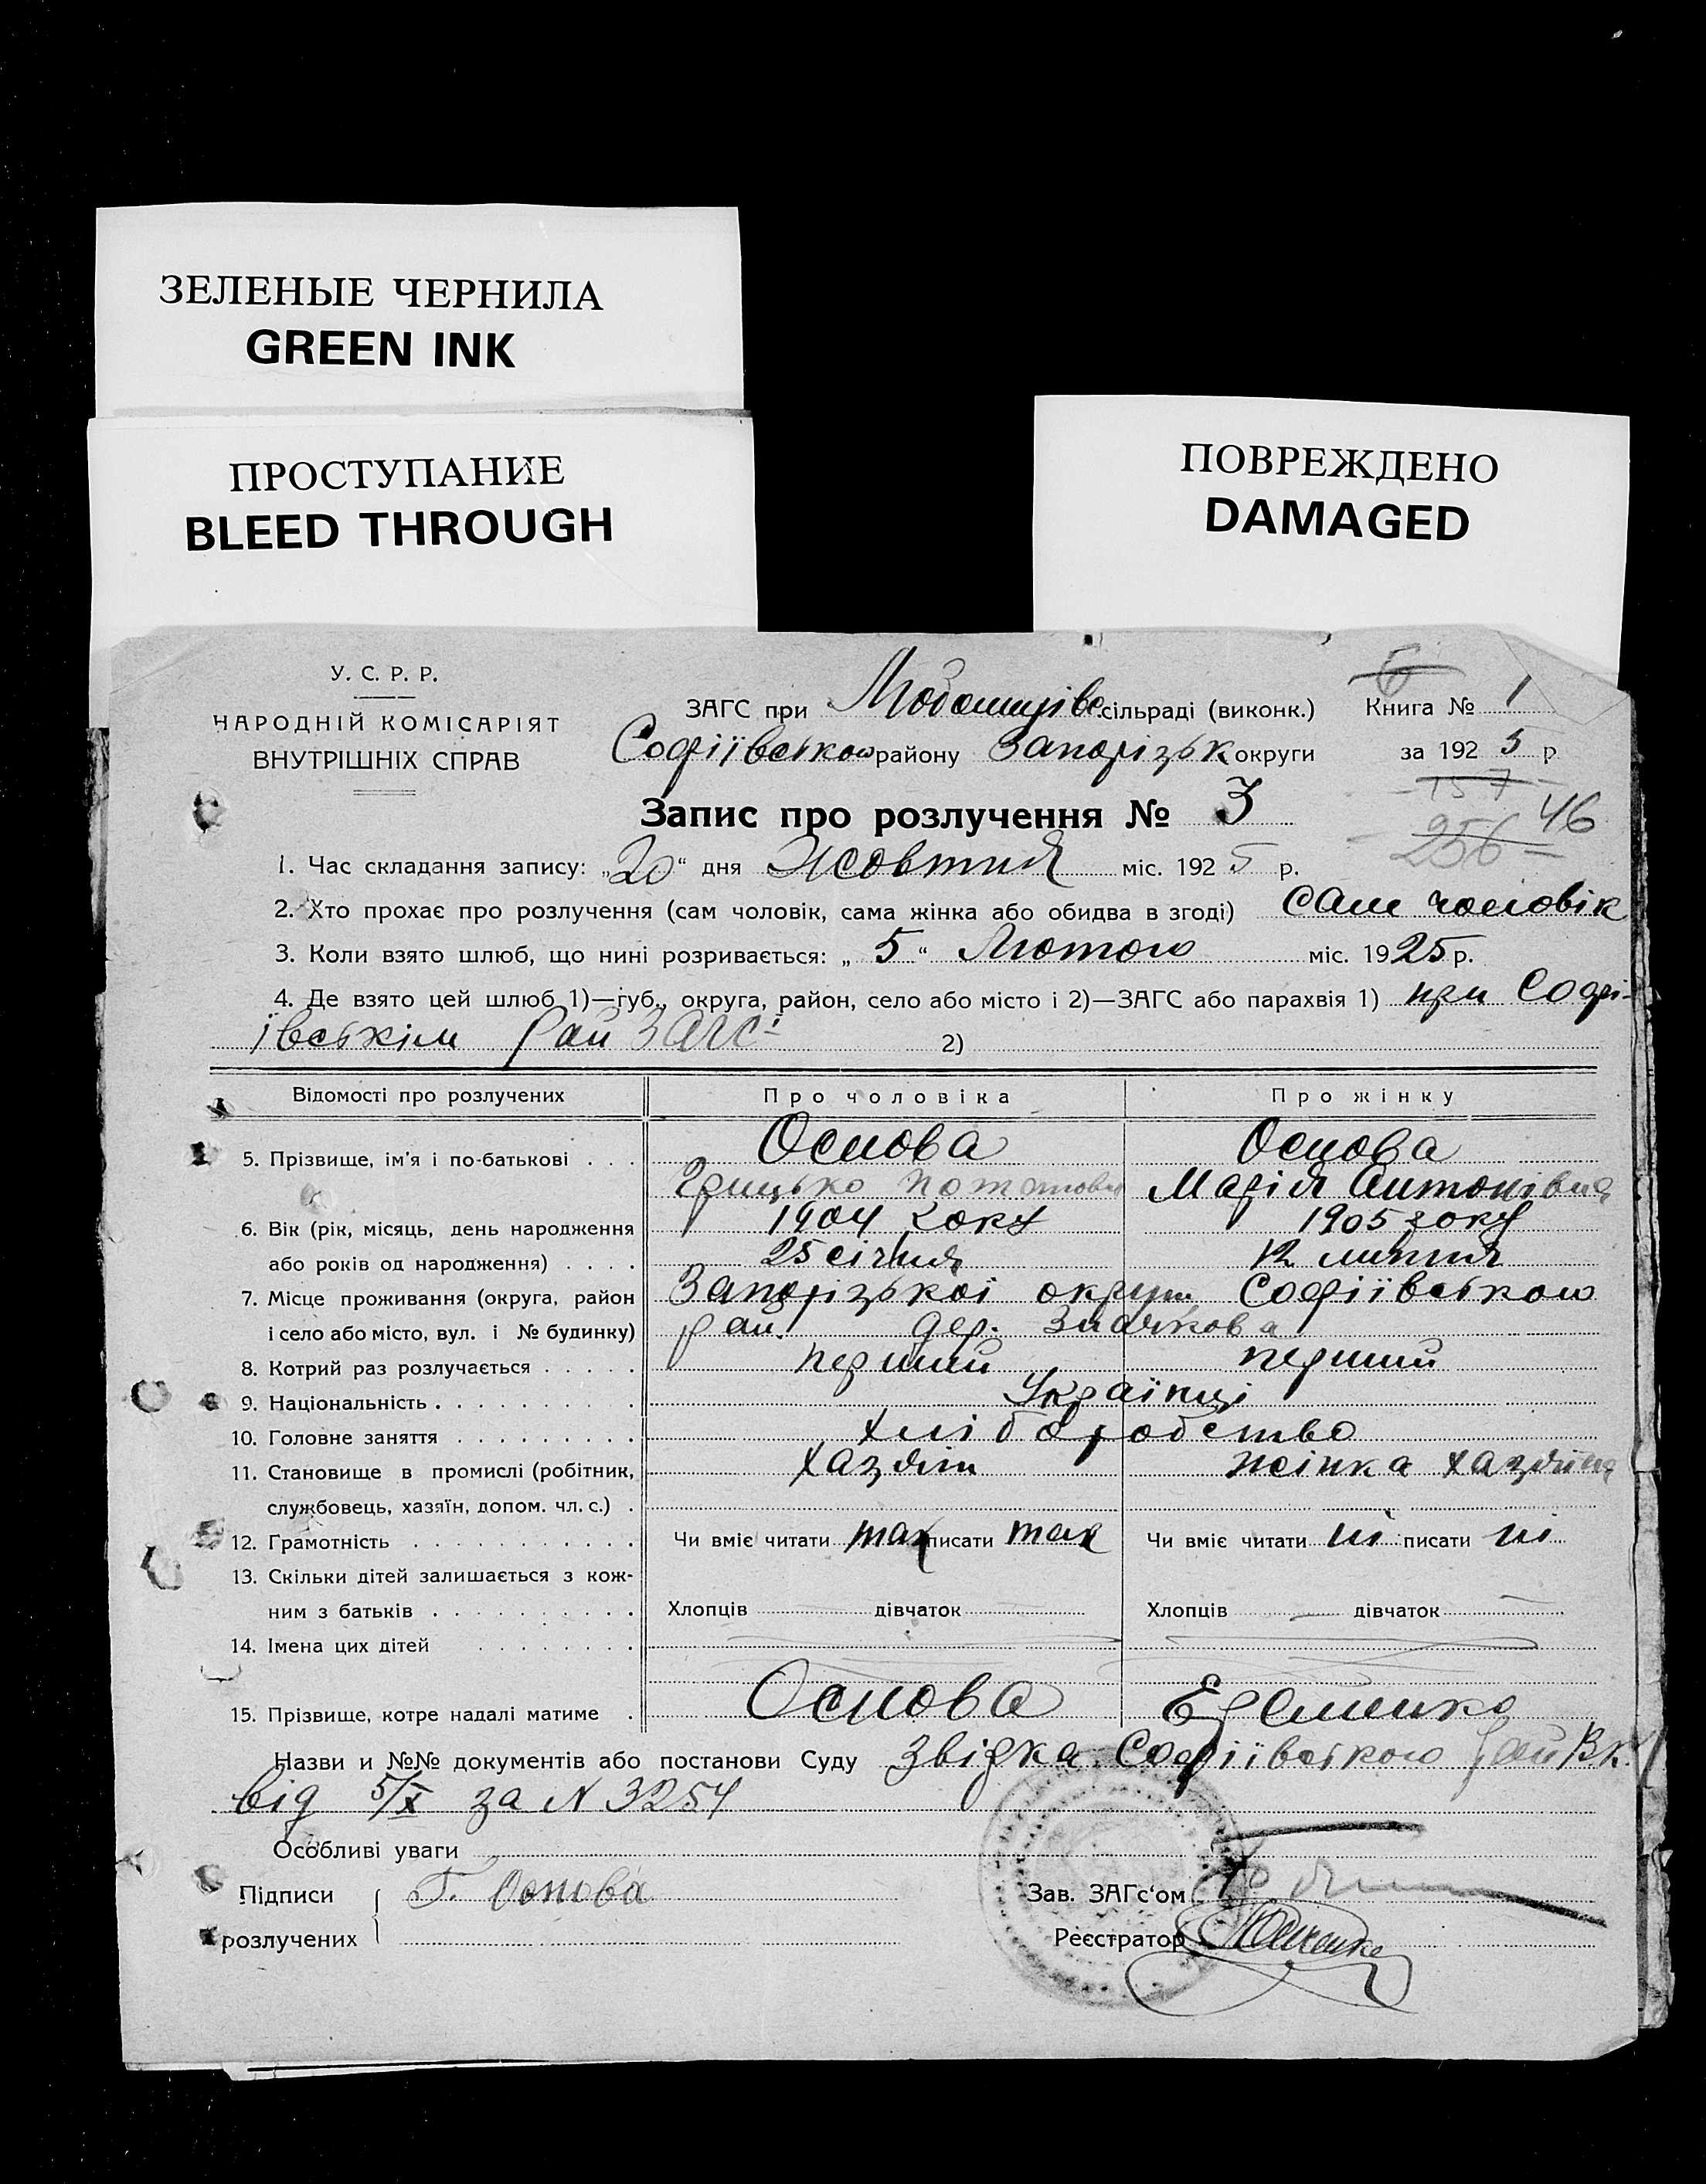 ЗЕЛЕНЫЕ ЧЕРНИЛА
GREEN INK
ПРОСТУПАНИЕ
BLEED THROUGH
ПОВРЕЖДЕНО
DAMAGED
У. С. Р. Р.
НАРОДНІЙ КОМІСАРІЯТ
ВНУТРІШНІХ СПРАВ
ЗАГС при сільраді (виконк.)
Софіївського району Запорізьк округи
6
Книга № 1
за 192 5 р.
157
256 46
Запис про розлучення № 3
1. Час складання запису: „20“ дня Жовтня міс. 192 5 р.
2. Хто прохає про розлучення (сам чоловік, сама жінка або обидва в згоді) сам чоловік
3. Коли взято шлюб, що нині розривається: „5“ Лютого міс. 1925 р.
4. Де взято цей шлюб 1)—губ., округа, район, село або місто і 2)—ЗАГС або парахвія 1) при Софі-
ївськім Рай ЗАГСі 2)
Відомості про розлучених Про чоловіка Про жінку
5. Прізвище, ім'я і по-батькові . . . Основа Основа
Грицько Марія Антонівна
6. Вік (рік, місяць, день народження 1904 року 1905 року
або років од народження) . . . . 25 січня 12 липня
7. Місце проживання (округа, район Запорізької округи, Софіївського
і село або місто, вул. і № будинку) рай. дер. Значкова
8. Котрий раз розлучається . . . . . перший перший
9. Національність . . . . . . . . . Українці
10. Головне заняття . . . . . . . . . хліборобство
11. Становище в промислі (робітник, хазяїн жінка хазяїна
службовець, хазяїн, допом. чл. с.) .
12. Грамотність . . . . . . . . . . . Чи вміє читати так писати так Чи вміє читати ні писати ні
13. Скільки дітей залишається з кож-
ним з батьків . . . . . . . . . . Хлопців дівчаток Хлопців — дівчаток —
14. Імена цих дітей . . . . . . . .
15. Прізвище, котре надалі матиме . Основа Еременко
Назви и №№ документів або постанови Суду Звідка Софіївського РайВК.
від 5/X за N 3254
Особливі уваги
Підписи Г. Основа
розлучених
Зав. ЗАГс'ом
Реєстратор